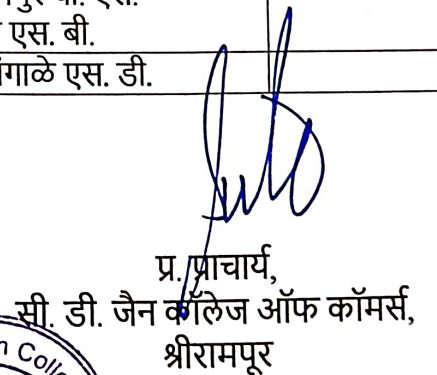 एस. बी.
गाळे एस. डी.
प्र. प्राचार्य,
सी. डी. जैन कॉलेज ऑफ कॉमर्स,
श्रीरामपूर
n Coll